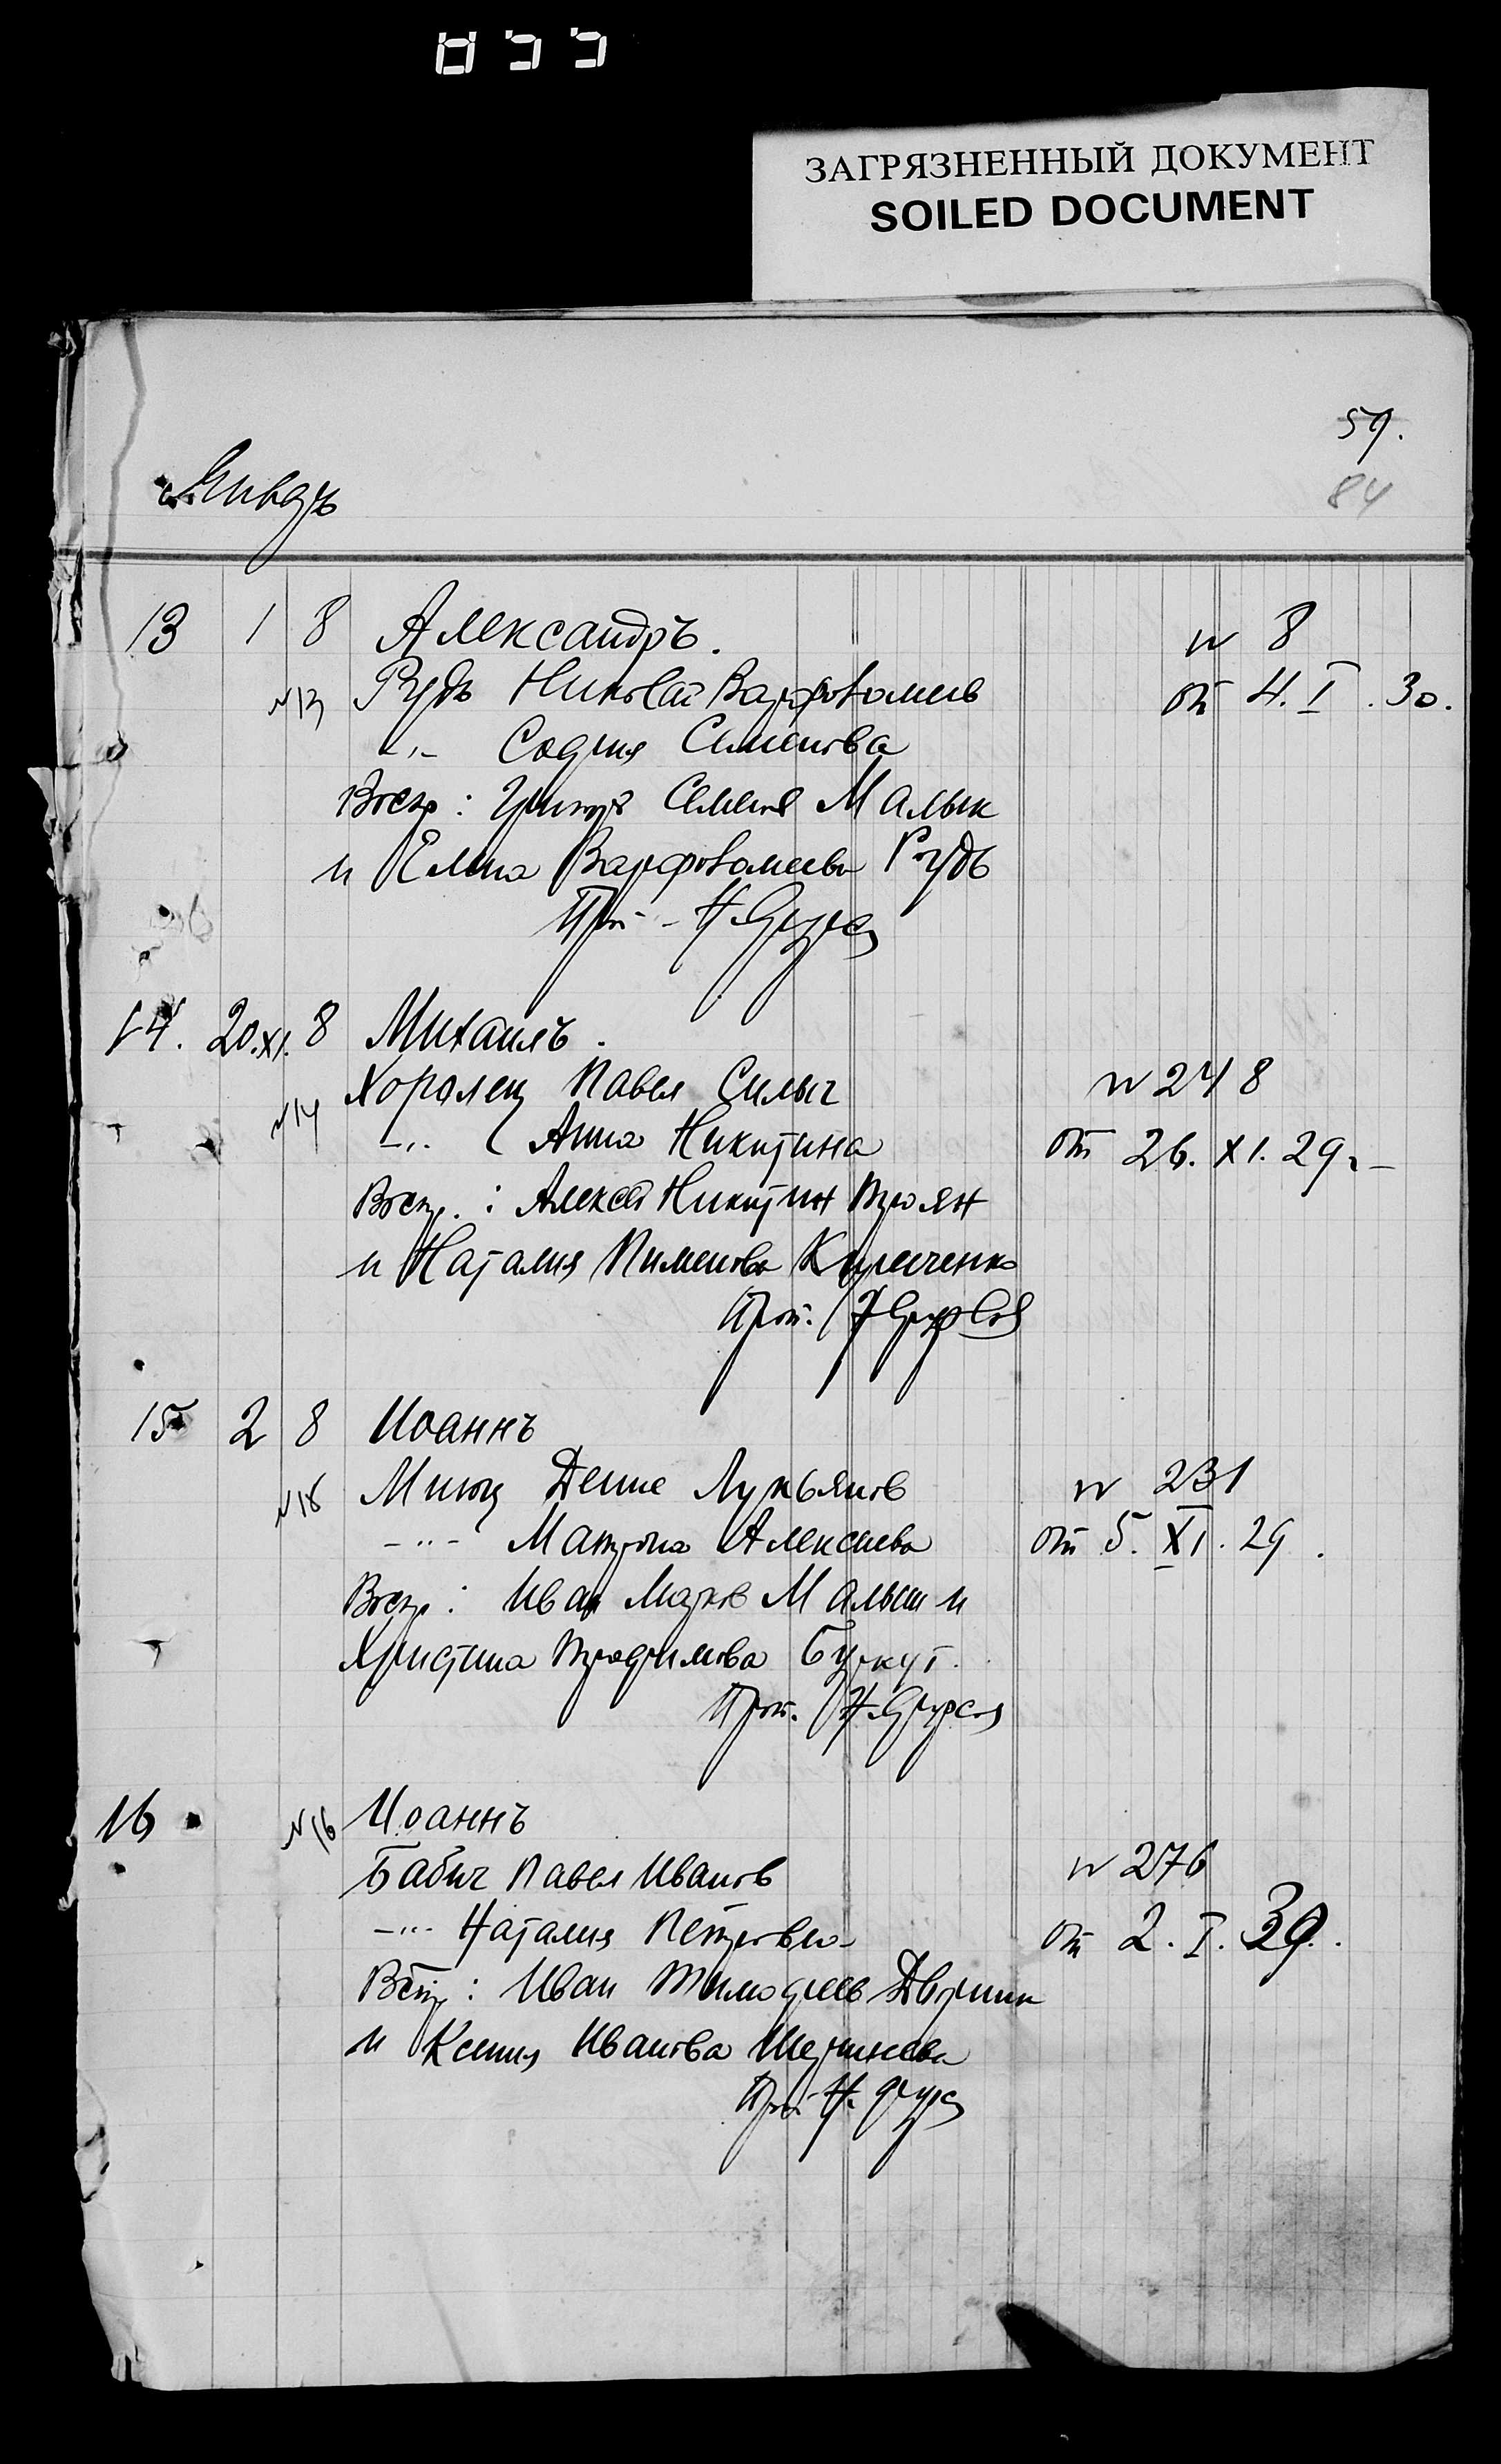 855
ЗАГРЯЗНЕННЫЙ ДОКУМЕНТ
SOILED DOCUMENT
59.
84
Январь
13 1 8 Александръ. № 8
№13 Рудь Николай Варфоломеев от 4. I. 30.
-"- София Семенова
Воспр: Семенов Малык
и Елена Варфоломеева Рудь
Прот. Н.
14. 20.XI. 8 Михаилъ. № 248
№14 Хоролец Павел Силыч
-"- Анна Никитина от 26. XI. 29 г.
Воспр.: Алексей Никитин Троян
и Наталия Пименова Кириченко
Прот.
15 2 8 Иоаннъ
Лукьянов № 231
-"- Матрона Алексеева от 5. XI. 29.
Воспр: Иван Марков Малыш и
Христина Трофимова Буркут.
Прот. Н.
16 №16 Иоаннъ
Бабич Павел Иванов № 276
-"- Наталия Петровна от 2. I.
Воспр: Иван Тимофеев Дворник
и Ксения Иванова
Прот. Н.